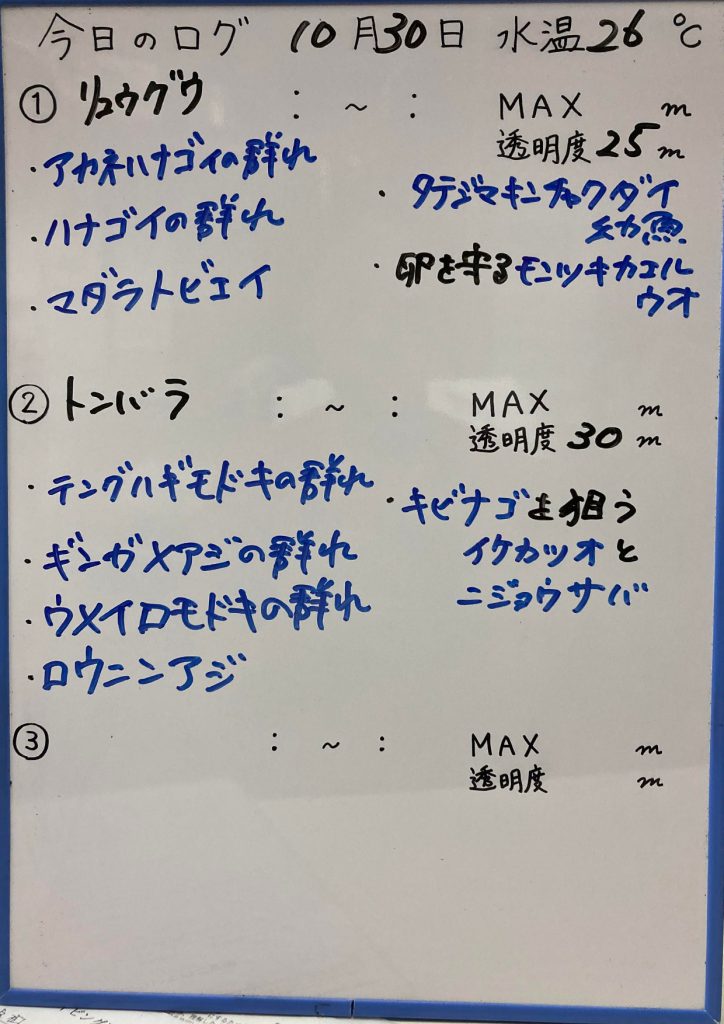 今日のログ 10月30日 水温26℃
① リュウグウ : ~ : MAX m
透明度25m
・アカネハナゴイの群れ
・ハナゴイの群れ
・マダラトビエイ
・タテジマキンチャクダイ
幼魚
・卵を守るモンツキカエル
ウオ
② トンバラ : ~ : MAX m
透明度30m
・テングハギモドキの群れ
・ギンガメアジの群れ
・ウメイロモドキの群れ
・ロウニンアジ
・キビナゴを狙う
イケカツオと
ニジョウサバ
③ : ~ : MAX m
透明度 m